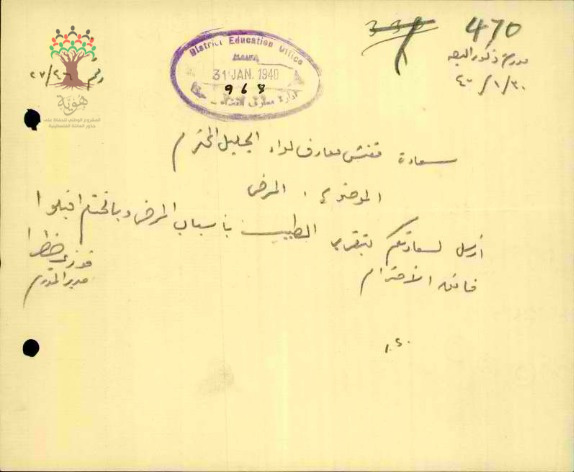 470
مدرسة ذكور البصة
٤٠/١/٣٠
رقم ٤٧/٢
هوية
District Education Office
HAIFA
31 JAN. 1940
968
سعادة مفتش معارف لواء الجليل المحترم
الموضوع : المرض
ارسل لسعادتكم بتقرير الطبيب بأسباب المرض وبالختام اقبلوا
فائق الاحترام
فوزي
مدير المدرسة